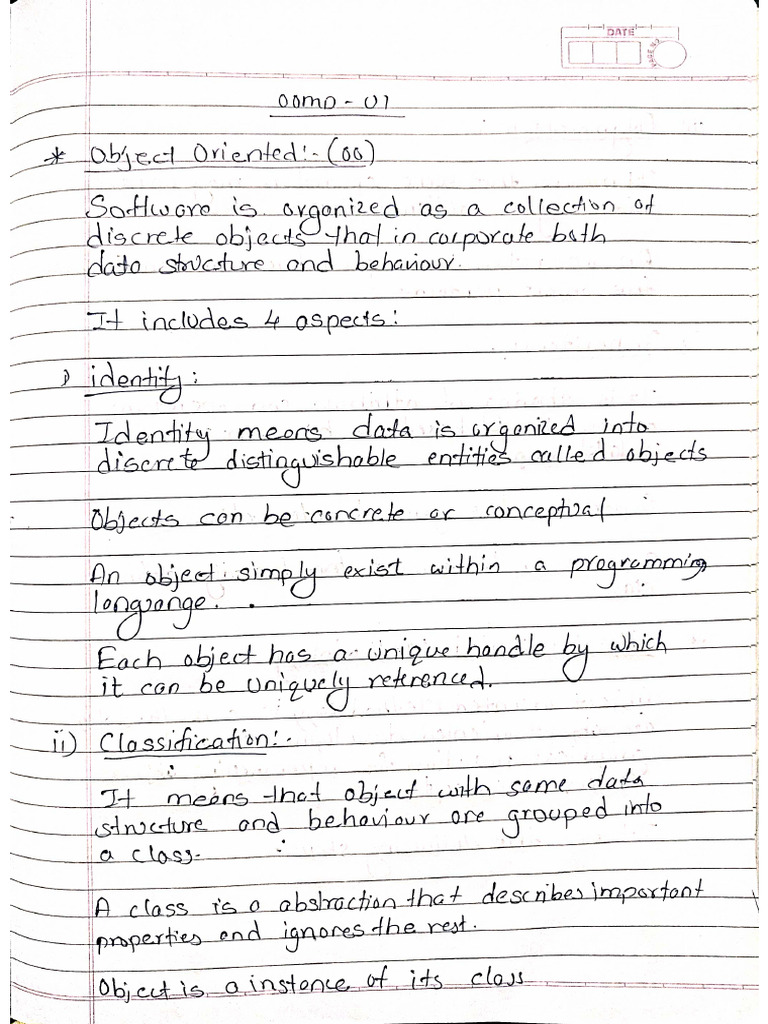 DATE
PAGE NO
OOMD - U1
* Object Oriented:- (OO)
Software is organized as a collection of
discrete objects that in corporate both
data structure and behaviour.
It includes 4 aspects:
i) identity:
Identity means data is organized into
discrete distinguishable entities called objects
Objects can be concrete or conceptual
An object simply exist within a programming
langurange.
Each object has a unique handle by which
it can be uniquely referenced.
ii) Classification:-
It means that object with same data
structure and behaviour are grouped into
a class.
A class is a abstraction that describes important
properties and ignores the rest.
Object is a instance of its class